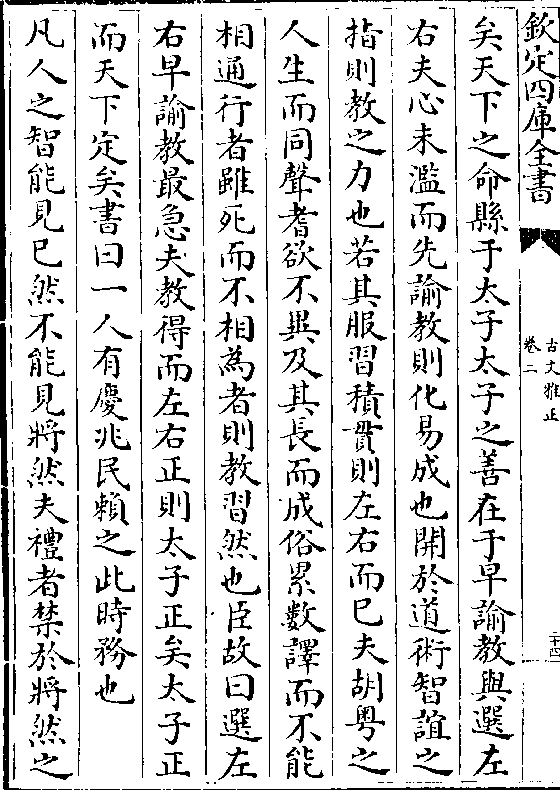 欽定四庫全書
古文雅正
卷二
二十四
矣天下之命縣于太子太子之善在于早諭教與選左
右夫心未濫而先諭教則化易成也開於道術智誼之
指則教之力也若其服習積貫則左右而已夫胡粤之
人生而同聲耆欲不異及其長而成俗累數譯而不能
相通行者雖死而不相為者則教習然也臣故曰選左
右早諭教最急夫教得而左右正則太子正矣太子正
而天下定矣書曰一人有慶兆民賴之此時務也
凡人之智能見已然不能見將然夫禮者禁於將然之